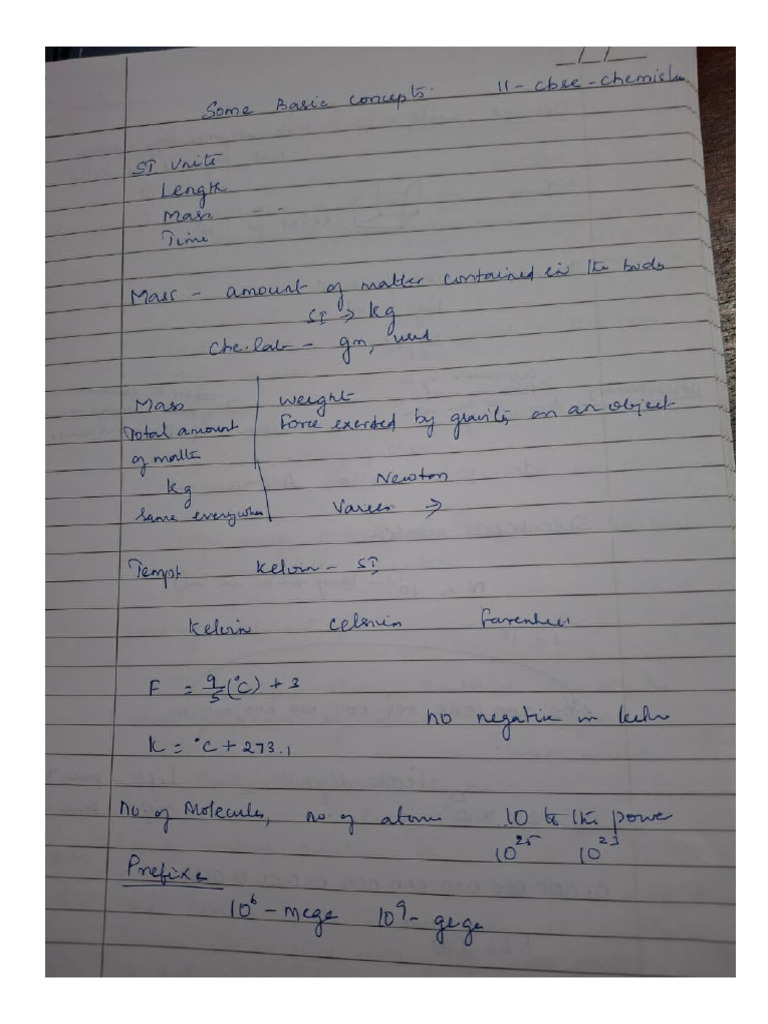 Some Basic concepts. 11 - cbse - chemis
SI Units
Length
Mass - -
Time
Mass - amount of matter contained in the body
SI → kg
Che. lab - gm, used
Mass weight
Total amount Force exerted by gravity on an object
of matte
kg Newton
Same everywher Varies →
Tempt Kelvin - SI
Kelvin Celsius Farenhei
F = 9/5 (°C) + 3
no negative in kelv
K = °C + 273.1
no of Molecules, no of atom 10 to the power
10²⁵ 10²³
Prefixe
10⁶ - mega 10⁹ - gega